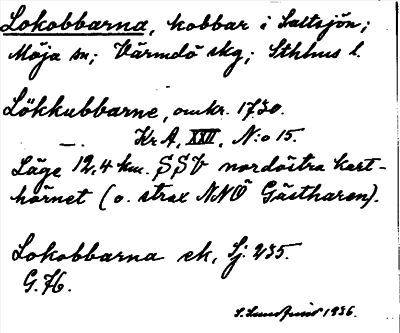 Lokobbarna, kobbar i Saltsjön;
Möja sn; Värmdö skg; Sthlms l.
Lökkubbarne, omkr. 1730.
Kr A, XXII, N:o 15.
Läge 12,4 km. SSV nordöstra kart-
hörnet (o. strax NNÖ Gästharen).
Lokobbarna ek, Sj: 235.
G. H.
1936.